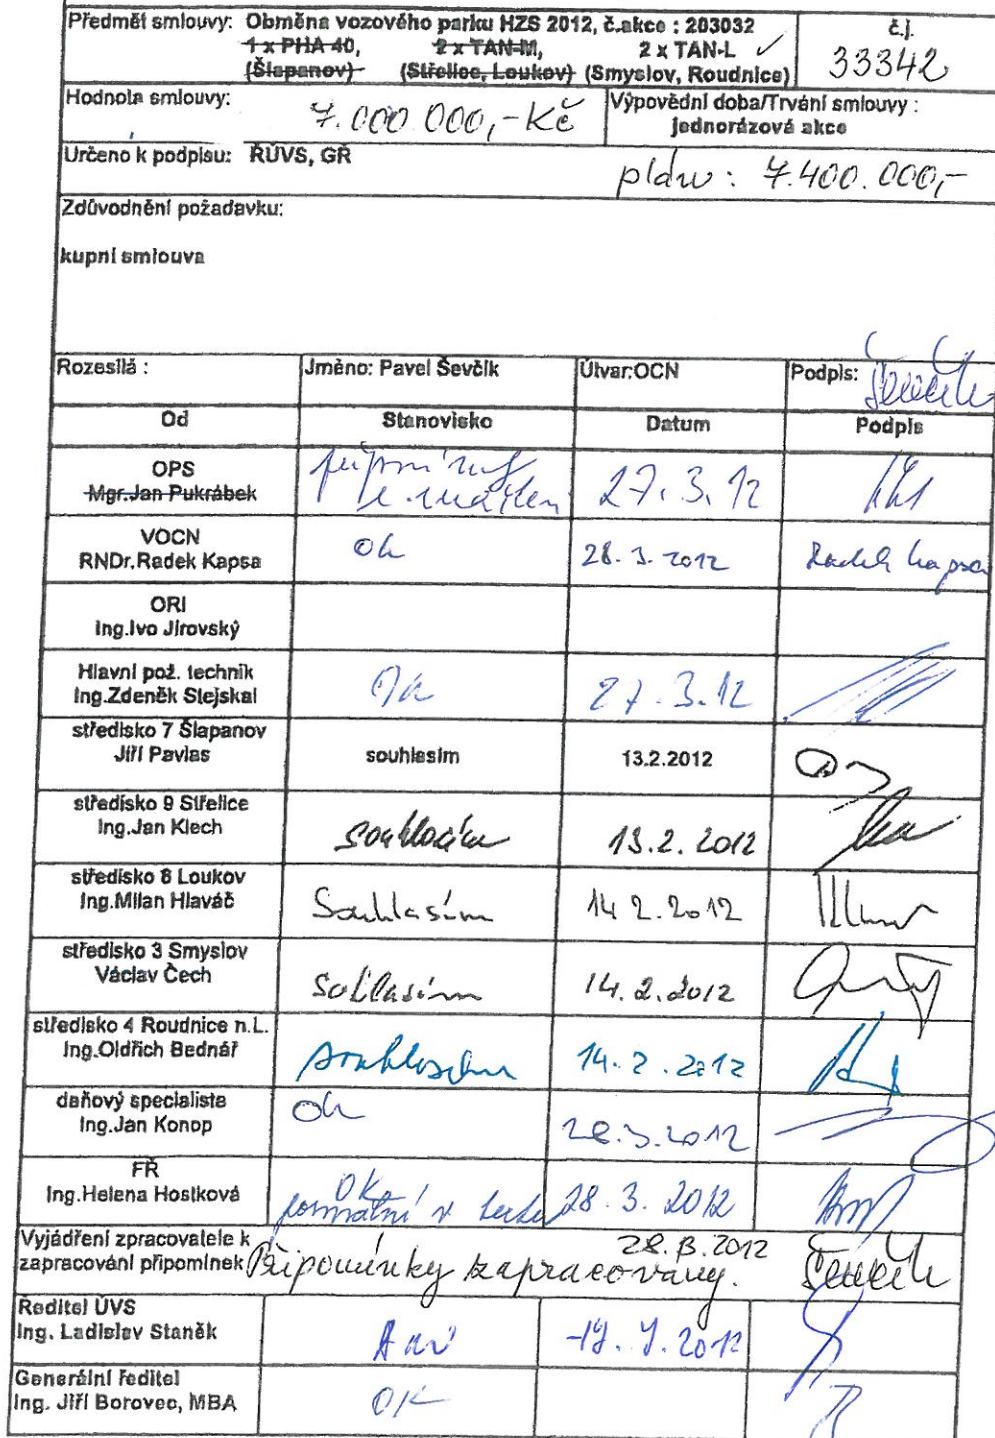 Předmět smlouvy: Obměna vozového parku HZS 2012, č.akce : 203032
č.j.
1 x PHA 40, 2 x TAN-M, 2 x TAN-L ✓
33342
(Šlapanov) (Střelice, Loukov) (Smyslov, Roudnice)
Hodnota smlouvy: 7.000 000,- Kč
Výpovědní doba/Trvání smlouvy :
jednorázová akce
Určeno k podpisu: ŘÚVS, GŘ
plán : 7.400.000,-
Zdůvodnění požadavku:
kupní smlouva
Rozesílá : Jméno: Pavel Ševčík Útvar:OCN Podpis: Ševčík
Od Stanovisko Datum Podpis
OPS
Mgr.Jan Pukrábek
27. 3. 12
VOCN
RNDr.Radek Kapsa
ok 28. 3. 2012 Radek Kapsa
ORI
Ing.Ivo Jirovský
Hlavní pož. technik
Ing.Zdeněk Stejskal
27. 3. 12
středisko 7 Šlapanov
Jiří Pavlas
souhlasím 13.2.2012
středisko 9 Střelice
Ing.Jan Klech
souhlasím 13. 2. 2012
středisko 8 Loukov
Ing.Milan Hlaváč
Souhlasím 14 2. 2012
středisko 3 Smyslov
Václav Čech
souhlasím 14. 2. 2012
středisko 4 Roudnice n.L.
Ing.Oldřich Bednář
souhlasím 14. 2. 2012
daňový specialista
Ing.Jan Konop
ok 28.3.2012
FŘ
Ing.Helena Hostková
OK 28. 3. 2012
Vyjádření zpracovatele k
zapracování připomínek
Připomínky zapracovány. 28. 3. 2012 Ševčík
Ředitel ÚVS
Ing. Ladislav Staněk
Ano
Generální ředitel
Ing. Jiří Borovec, MBA
OK